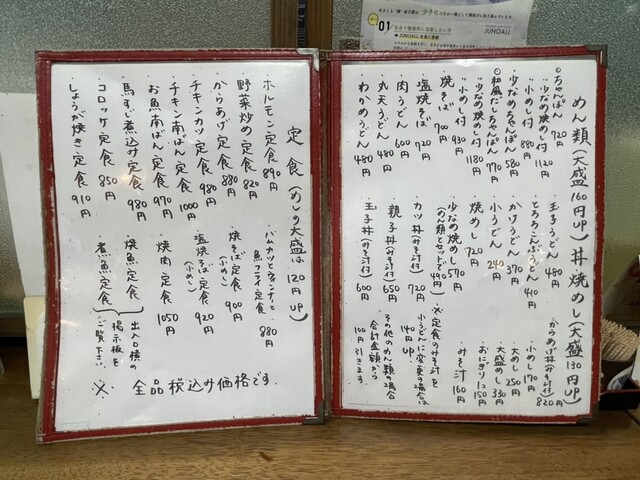 01
JUNOALL
めん類(大盛160円UP)丼 焼めし(大盛130円UP)
◎ちゃんぽん 720円
・少なめ焼めし付 1120円
・小めし付 880円
・少なめちゃんぽん 580円
◎和風だしちゃんぽん 770円
・少なめ焼めし付 1180円
・小めし付 930円
・焼そば 700円
・塩焼そば 720円
・肉うどん 600円
・丸天うどん 480円
・わかめうどん 480円
・玉子うどん 480円
・とろろこんぶうどん 410円
・かけうどん 370円
・小うどん 240円
・焼めし 720円
・少なめ焼めし 570円
(めん類とセットで490円)
・カツ丼(みそ汁付) 720円
・親子丼(みそ汁付) 650円
・玉子丼(みそ汁付) 600円
・からあげ丼(みそ汁付) 820円
・小めし 170円
・大めし 250円
・大盛めし 330円
・おにぎり1コ 150円
・みそ汁 160円
※定食のみそ汁を
小うどんに変更の場合は
140円UP
その他のめん類の場合
合計金額から
100円引きます
定食(めしの大盛は120円UP)
・ホルモン定食 890円
・野菜炒め定食 820円
・からあげ定食 880円
・チキンカツ定食 980円
・チキン南ばん定食 1000円
・お魚南ばん定食 970円
・馬すじ煮込み定食 980円
・コロッケ定食 850円
・しょうが焼き定食 910円
・ハムカツとウィンナーと
魚フライ定食 880円
・焼そば定食 900円
(小めし)
・塩焼そば定食 920円
(小めし)
・焼肉定食 1050円
・焼魚定食
・煮魚定食
出入口横の
掲示板を
ご覧下さい。
※全品税込み価格です。